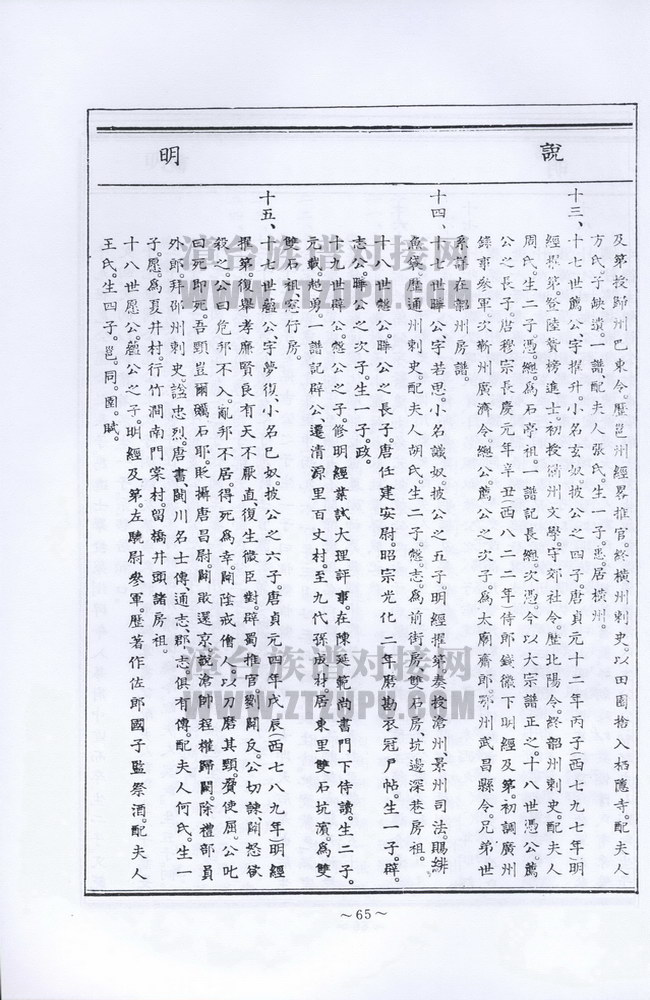 說明
及第投歸州巴東令。歷邕州經畧推官。終横州刺史。以田園捨入栖隱寺。配夫人
方氏。子缺續。一譜配夫人張氏。生一子。悉。居横州。
十三、十七世薦公、字擢升。小名玄奴。披公之四子。唐貞元十二年丙子(西七九七年)明
經擢第。登陸贄榜進士。初授衢州文學。守郊社令。歷北陽令。終韶州刺史。配夫人
周氏。生二子憑。總。為石亭祖。一譜記長總。次憑。今以大宗譜正之。十八世憑公。薦
公之長子。唐穆宗長慶元年辛丑(西八二二年)侍郎錢徽下明經及第。初調廣州
錄事參軍。次蘄州廣濟令。總公。薦公之次子。為太廟齋郎。鄂州武昌縣令。兄弟世
系詳在韶州房譜。
十四、十七世曄公、字若思。小名讖奴。披公之五子。明經擢第。奏授滄州、景州司法。賜緋
魚袋。歷通州刺史。配夫人胡氏。生二子。慥。志。為前街房、雙石房、坑邊深巷房祖。
十八世慥公。曄公之長子。唐任建安尉。昭宗光化二年磨勘衣冠戶帖。生一子。辟。
志公。曄公之次子。生一子。政。
十九世辟公。慥公之子。修明經業。試大理評事。在陳延範尚書門下侍讀。生二子。
元載。超勇。一譜記辟公、遷清源里百丈村。至九代孫成材。居東里雙石坑濱。為雙
雙石祖。窓行房。
十五、十七世蘊公、字夢復、小名巳奴。披公之六子。唐貞元四年戊辰(西七八九年)明經
擢第。復舉孝廉賢良有天不厭直、復生微臣對。辟蜀推官。劉闢反。公切諫。闢怒欲
殺之。公曰危邦不入。亂邦不居。得死為幸。闢陰戒儈人以刀磨其頸。脅使屈。公叱
曰死即死。吾頸豈爾礪石耶。貶攝唐昌尉。闢敗還京。說滄帥程權歸闕。除禮部員
外郎。拜邵州刺史。諡忠烈。唐書、閩川名士傳、通志、郡志。俱有傳。配夫人何氏。生一
子。愿。為夏井村。行竹澗南門棠村。留橋井頭諸房祖。
十八世愿公。蘊公之子。明經及第。左驍尉參軍。歷著作佐郎國子監祭酒。配夫人
王氏。生四子。邕。同。圄。賦。
~65~
滇台族谱对接网
WWW.ZTZUPU.COM
滇台族谱对接网
WWW.ZTZUPU.COM